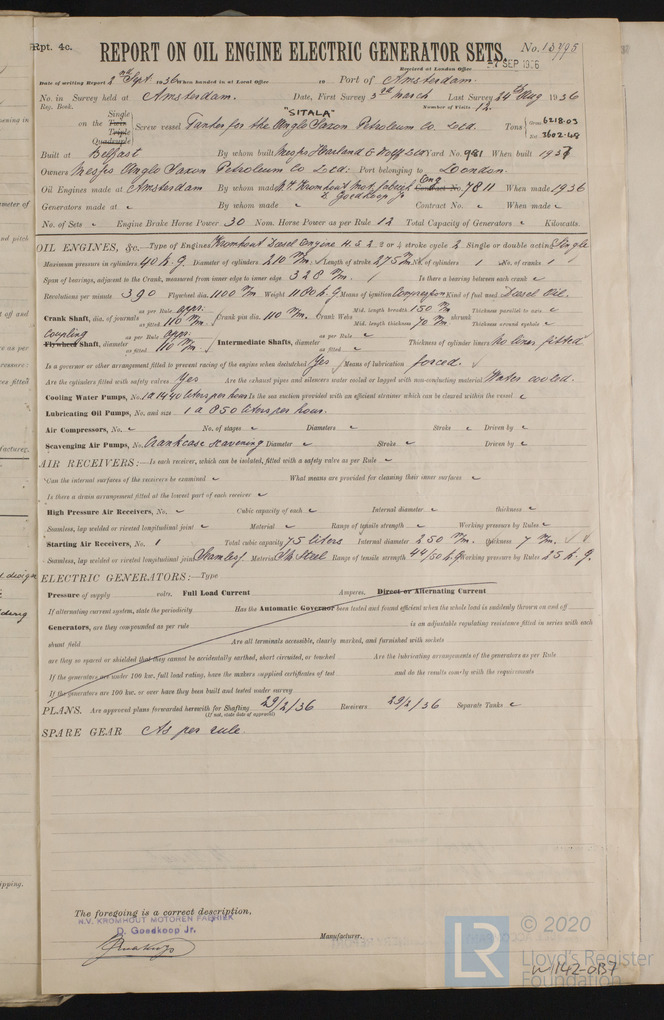 Rpt. 4c.
REPORT ON OIL ENGINE ELECTRIC GENERATOR SETS. No.
Received at London Office
7 SEP 1936
Date of writing Report 2nd Sept. 1936 When handed in at Local Office 19 Port of Amsterdam.
No. in Survey held at Amsterdam. Date, First Survey 3rd March Last Survey 24th Aug 1936
Reg. Book. Number of Visits 12.
"SITALA"
Single
on the Twin Screw vessel Tanker for the Anglo Saxon Petroleum Co Ltd. Tons Gross 6218.03
Triple
Quadruple Net 3602.68
Built at Belfast By whom built Messrs Harland & Wolff Ltd Yard No. 981 When built 1937
Owners Messrs Anglo Saxon Petroleum Co Ltd: Port belonging to London.
Oil Engines made at Amsterdam By whom made N.V. Kromhout Mot. fabriek D. Goedkoop Jr Eng Contract No. 7811 When made 1936
Generators made at By whom made Contract No. When made
No. of Sets Engine Brake Horse Power 30 Nom. Horse Power as per Rule 12 Total Capacity of Generators Kilowatts.
OIL ENGINES, &c.—Type of Engines Kromhout Diesel engine 2 or 4 stroke cycle 2 Single or double acting Single
Maximum pressure in cylinders 40 k.g. Diameter of cylinders 210 m/m. Length of stroke 275 m/m. No. of cylinders 1 No. of cranks 1
Span of bearings, adjacent to the Crank, measured from inner edge to inner edge 328 m/m. Is there a bearing between each crank
Revolutions per minute 390 Flywheel dia. 1100 m/m Weight 1180 k.g. Means of ignition Compression Kind of fuel used Diesel Oil.
Crank Shaft, dia. of journals as per Rule appr. as fitted 110 m/m. Crank pin dia. 110 m/m. Crank Webs Mid. length breadth 150 m/m Mid. length thickness 70 m/m shrunk Thickness parallel to axis Thickness around eyehole
Coupling
Flywheel Shaft, diameter as per Rule appr. as fitted 110 m/m. Intermediate Shafts, diameter as per Rule as fitted Thickness of cylinder liners No liner fitted
Is a governor or other arrangement fitted to prevent racing of the engine when declutched Yes Means of lubrication forced.
Are the cylinders fitted with safety valves Yes Are the exhaust pipes and silencers water cooled or lagged with non-conducting material Water cooled.
Cooling Water Pumps, No. 1 a 1440 liters per hour Is the sea suction provided with an efficient strainer which can be cleared within the vessel
Lubricating Oil Pumps, No. and size 1 a 850 liters per hour.
Air Compressors, No. No. of stages Diameters Stroke Driven by
Scavenging Air Pumps, No. Crankcase scavening Diameter Stroke Driven by
AIR RECEIVERS:—Is each receiver, which can be isolated, fitted with a safety valve as per Rule
Can the internal surfaces of the receivers be examined What means are provided for cleaning their inner surfaces
Is there a drain arrangement fitted at the lowest part of each receiver
High Pressure Air Receivers, No. Cubic capacity of each Internal diameter thickness
Seamless, lap welded or riveted longitudinal joint Material Range of tensile strength Working pressure by Rules
Starting Air Receivers, No. 1 Total cubic capacity 75 liters Internal diameter 250 m/m. thickness 7 m/m.
Seamless, lap welded or riveted longitudinal joint Seamless Material Range of tensile strength 44/50 k.g. Working pressure by Rules 25 k.g.
ELECTRIC GENERATORS:—Type
Pressure of supply volts. Full Load Current Amperes. Direct or Alternating Current
If alternating current system, state the periodicity Has the Automatic Governor been tested and found efficient when the whole load is suddenly thrown on and off
Generators, are they compounded as per rule is an adjustable regulating resistance fitted in series with each
shunt field Are all terminals accessible, clearly marked, and furnished with sockets
are they so spaced or shielded that they cannot be accidentally earthed, short circuited, or touched Are the lubricating arrangements of the generators as per Rule
If the generators are under 100 kw. full load rating, have the makers supplied certificates of test and do the results comply with the requirements
If the generators are 100 kw. or over have they been built and tested under survey
PLANS. Are approved plans forwarded herewith for Shafting 29/2/36 Receivers 29/2/36 Separate Tanks
(If not, state date of approval)
SPARE GEAR As per rule.
The foregoing is a correct description,
N.V. KROMHOUT MOTOREN FABRIEK
D. Goedkoop Jr.
Manufacturer.
LR © 2020
Lloyd's Register
Foundation
W142-0137